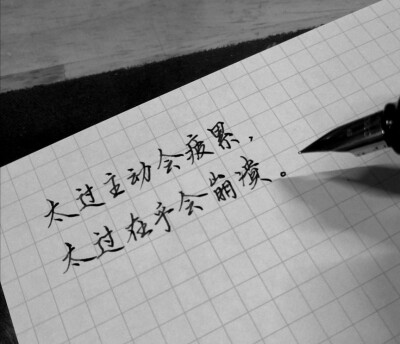 太过主动会疲累，
太过在乎会崩溃。